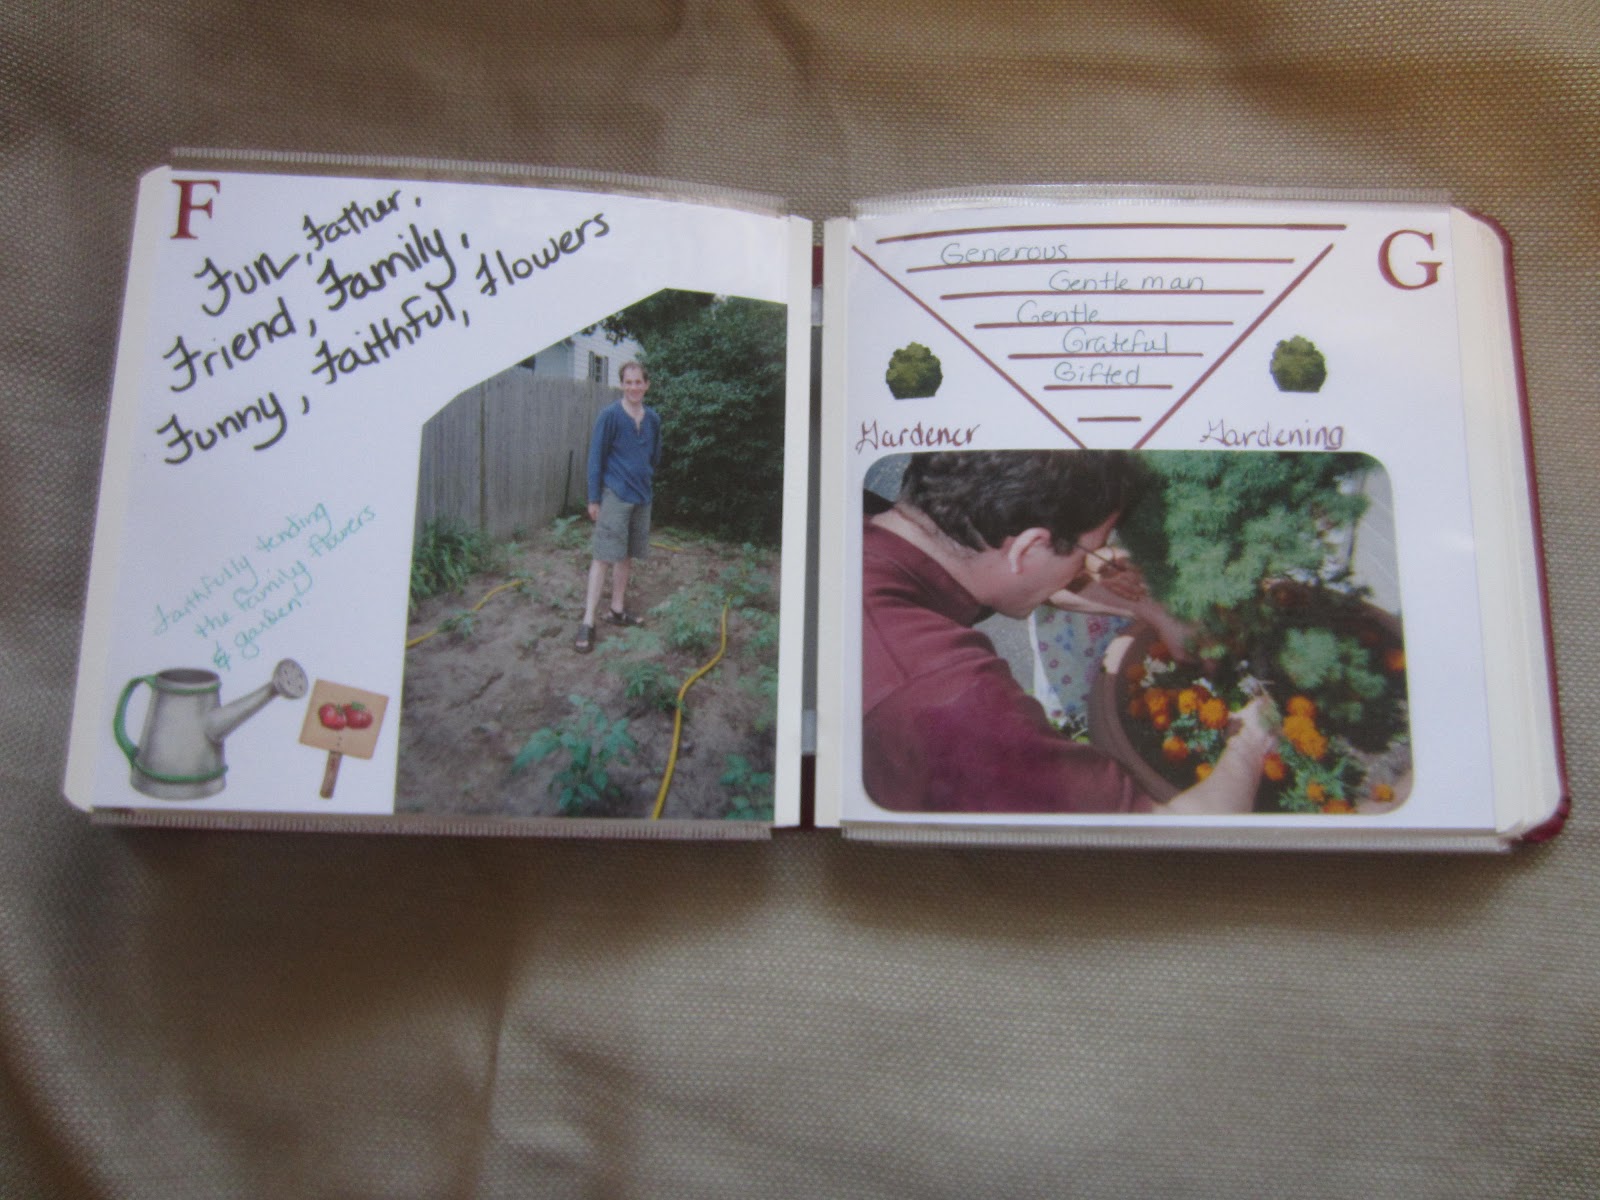 F
Fun, Father,
Friend, Family,
Funny, Faithful, Flowers
Faithfully tending
the family flowers
& garden!
G
Generous
Gentle man
Gentle
Grateful
Gifted
Gardener
Gardening